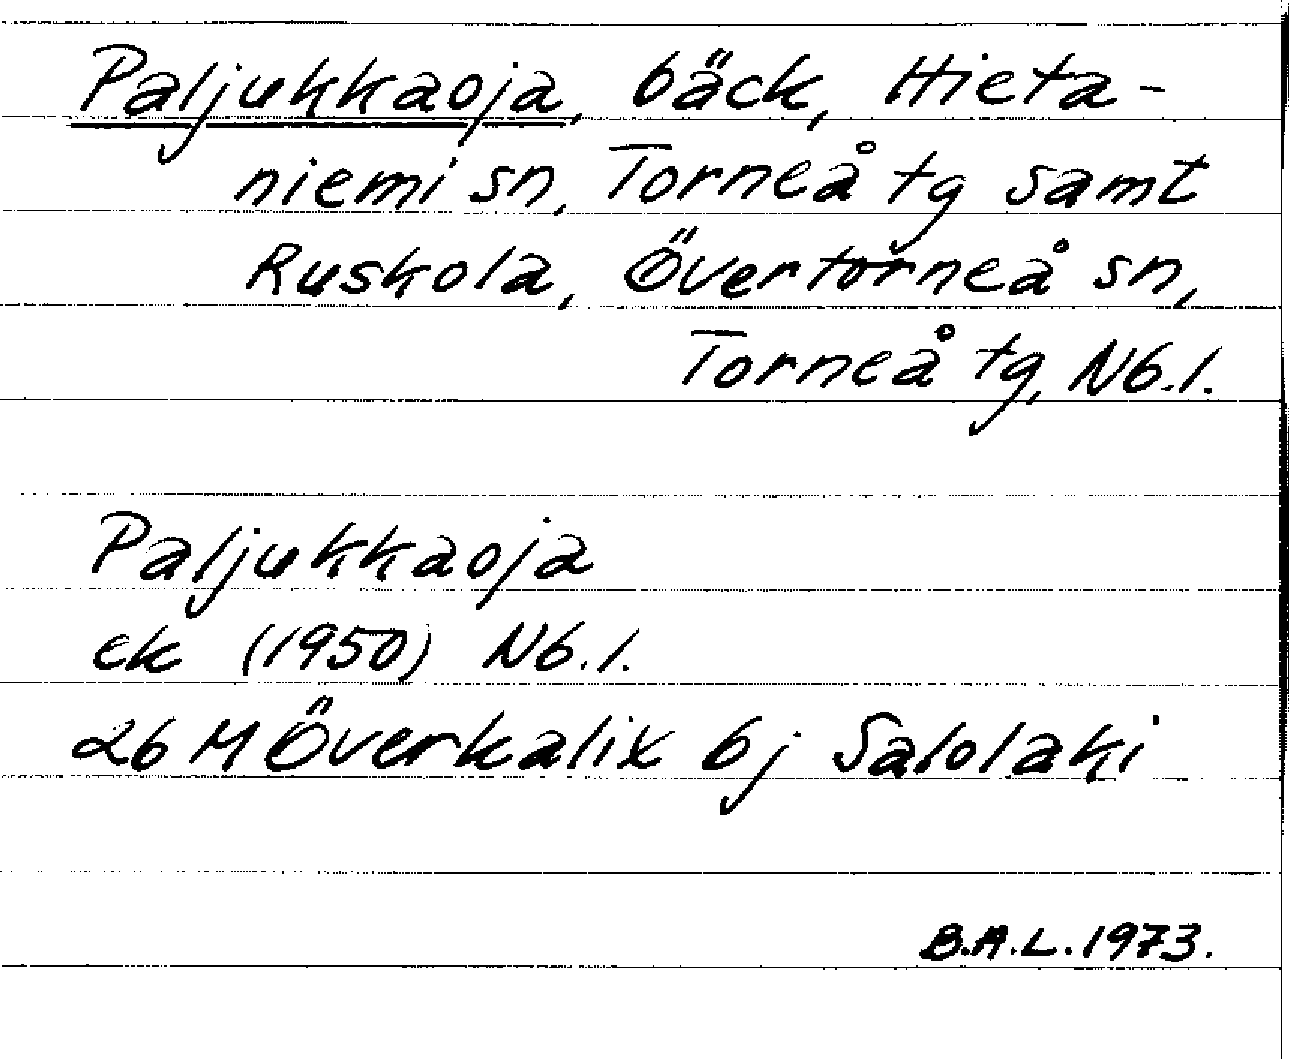 Paljukkaoja, bäck, Hieta-
niemi sn, Torneå tg samt
Ruskola, Övertorneå sn,
Torneå tg, Nb.l.
Paljukkaoja
ek (1950) Nb.l.
26 M Överkalix bj Salolaki
B.A.L. 1973.